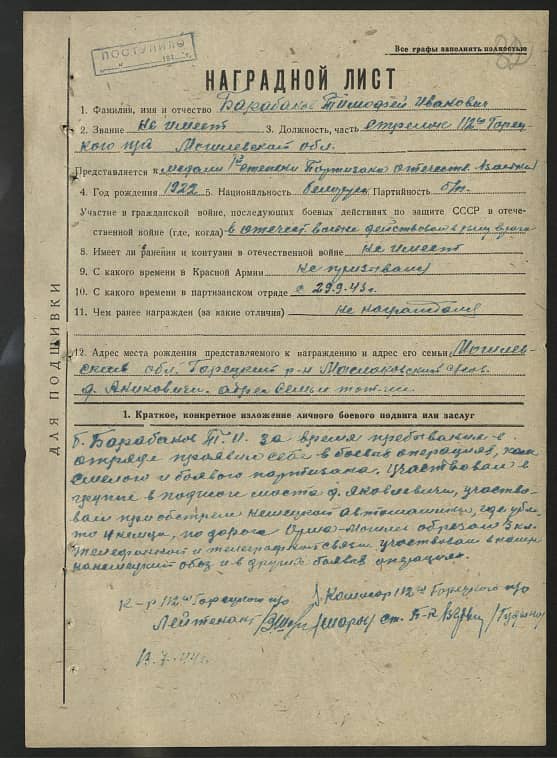 ПОСТУПИЛО
Все графы заполнять полностью
НАГРАДНОЙ ЛИСТ
1. Фамилия, имя и отчество Барабанов Тимофей Иванович
2. Звание не имеет 3. Должность, часть стрелок 112го Горец
кого п/о Могилевской обл.
Представляется к медали 1й степени Партизана отечеств. 
4. Год рождения 1922 5. Национальность белорус Партийность б/п.
Участие в гражданской войне, последующих боевых действиях по защите СССР в отече-
ственной войне (где, когда) в отечест. войне действовал в тылу врага
8. Имеет ли ранения и контузии в отечественной войне не имеет
9. С какого времени в Красной Армии не призывался
10. С какого времени в партизанском отряде с 29.9.43г.
11. Чем ранее награжден (за какие отличия) не награждался
12. Адрес места рождения представляемого к награждению и адрес его семьи Могилев-
ская обл. Горецкий р-н Маслаковский с/сов.
д. адрес семьи тот-же.
ДЛЯ ПОДШИВКИ
1. Краткое, конкретное изложение личного боевого подвига или заслуг
т. Барабанов Т.И. за время пребывания в
отряде проявил себя в боевых операциях, как
смелого и боевого партизана. Участвовал в
группе в моста д. участво-
вал при обстреле немецкой автомашины, где уби-
то 4 немца, по дороге обрезал 3 км.
телефонной и телеграфной связи участвовал в
на немецкий обоз и в других боевых операциях.
К-р 112го Горецкого п/о
Комиссар 112го Горецкого п/о
Лейтенант
ст. п-к
13.7.44г.